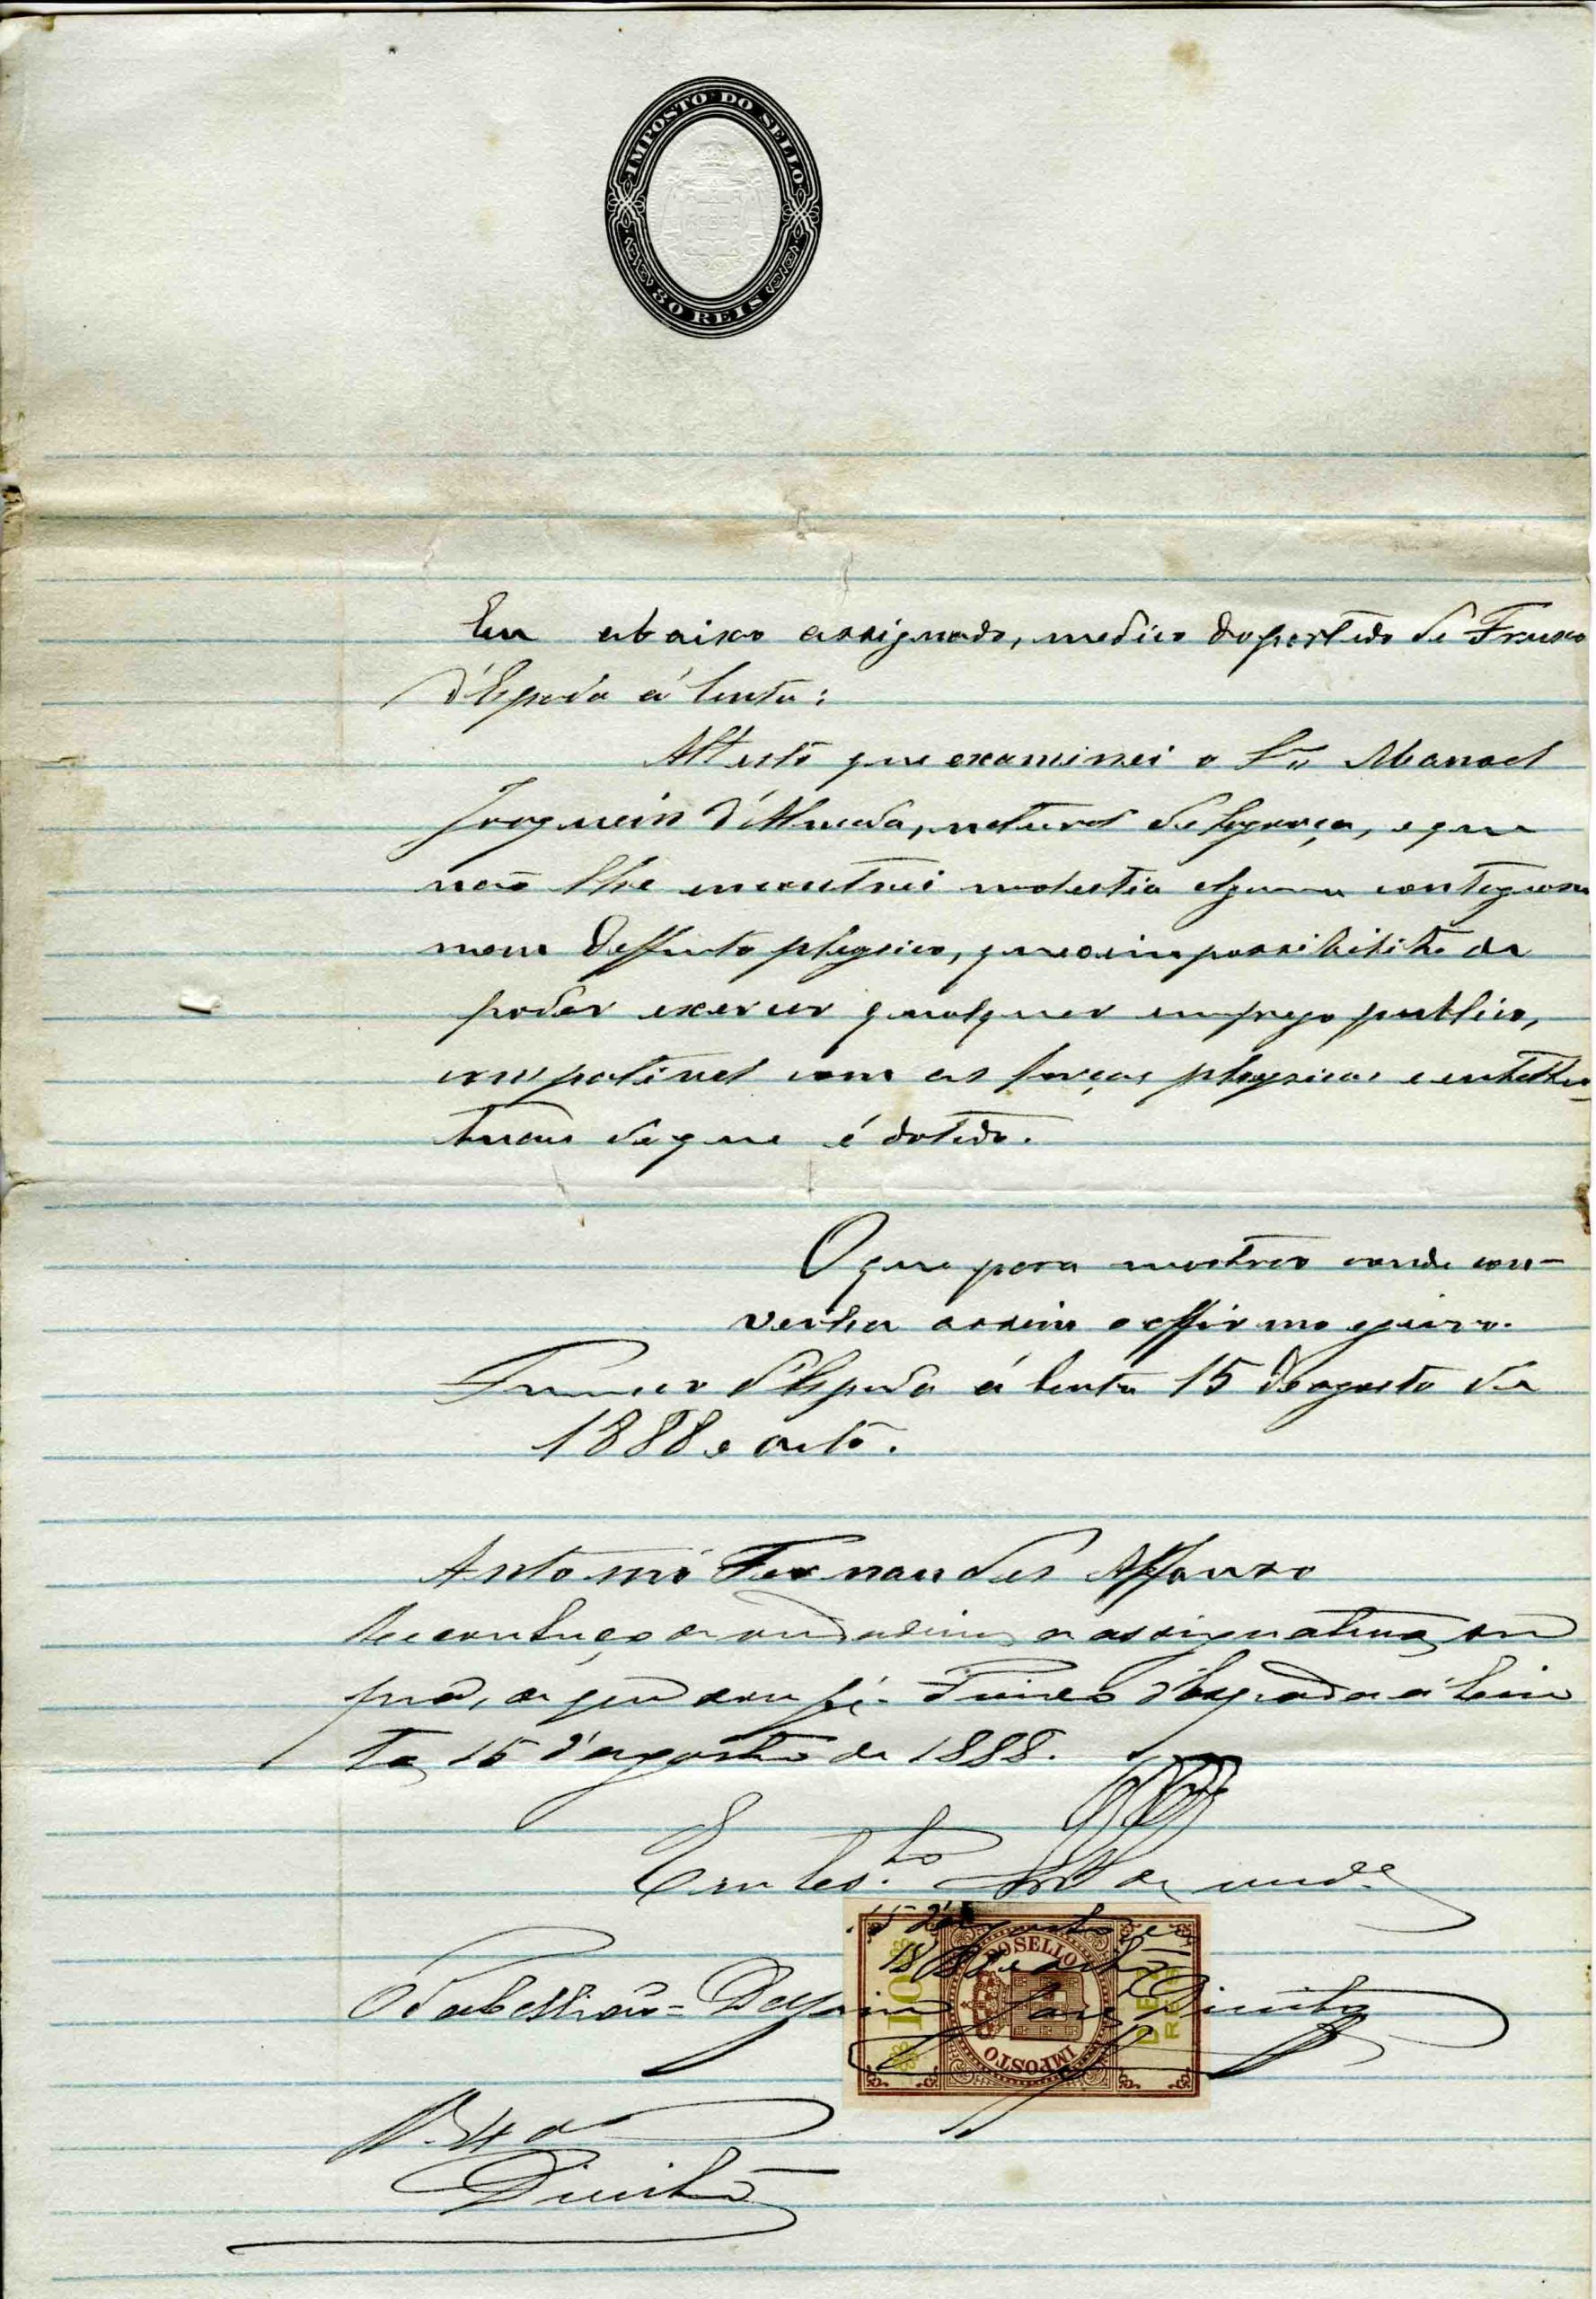 IMPOSTO DO SELLO
80 REIS
Eu abaixo assignado, medico do partido de Freixo
d'Espada á Cinta:
Attesto que examinei o Snr Manoel
Joaquim d'Almeida, natural de Lagoaça, e que
não lhe encontrei molestia alguma contagiosa
nem deffeito physico, que o impossibilite de
poder exercer qualquer emprego publico,
compativel com as forças physicas e intelle-
ctuaes de que é dotado.
O que para mostrar onde con-
venha assim o affirmo e juro.
Freixo d'Espada á Cinta 15 de agosto de
1888 e oito.
Antonio Fernandes Affonso
Reconheço a verdadeira a assignatura
de que dou fé. Freixo d'Espada á Cin
ta, 15 d'agosto de 1888.
Em tes.to da verd.e
15 d'agosto de
18
10
IMPOSTO DO SELLO
DEZ
REIS
O Tabellião = José